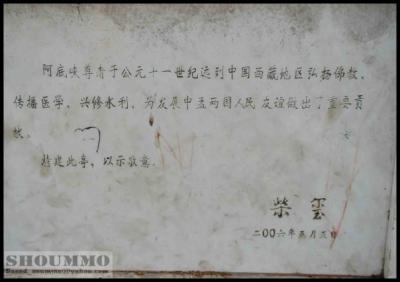 阿底峡尊者于公元十一世纪远到中国西藏地区弘扬佛教,
传播医学,兴修水利,为发展中孟两国人民友谊做出了重要贡
献。
捡建此亭,以示敬意.
柴玺
二00六年三月三日
SHOUMMO